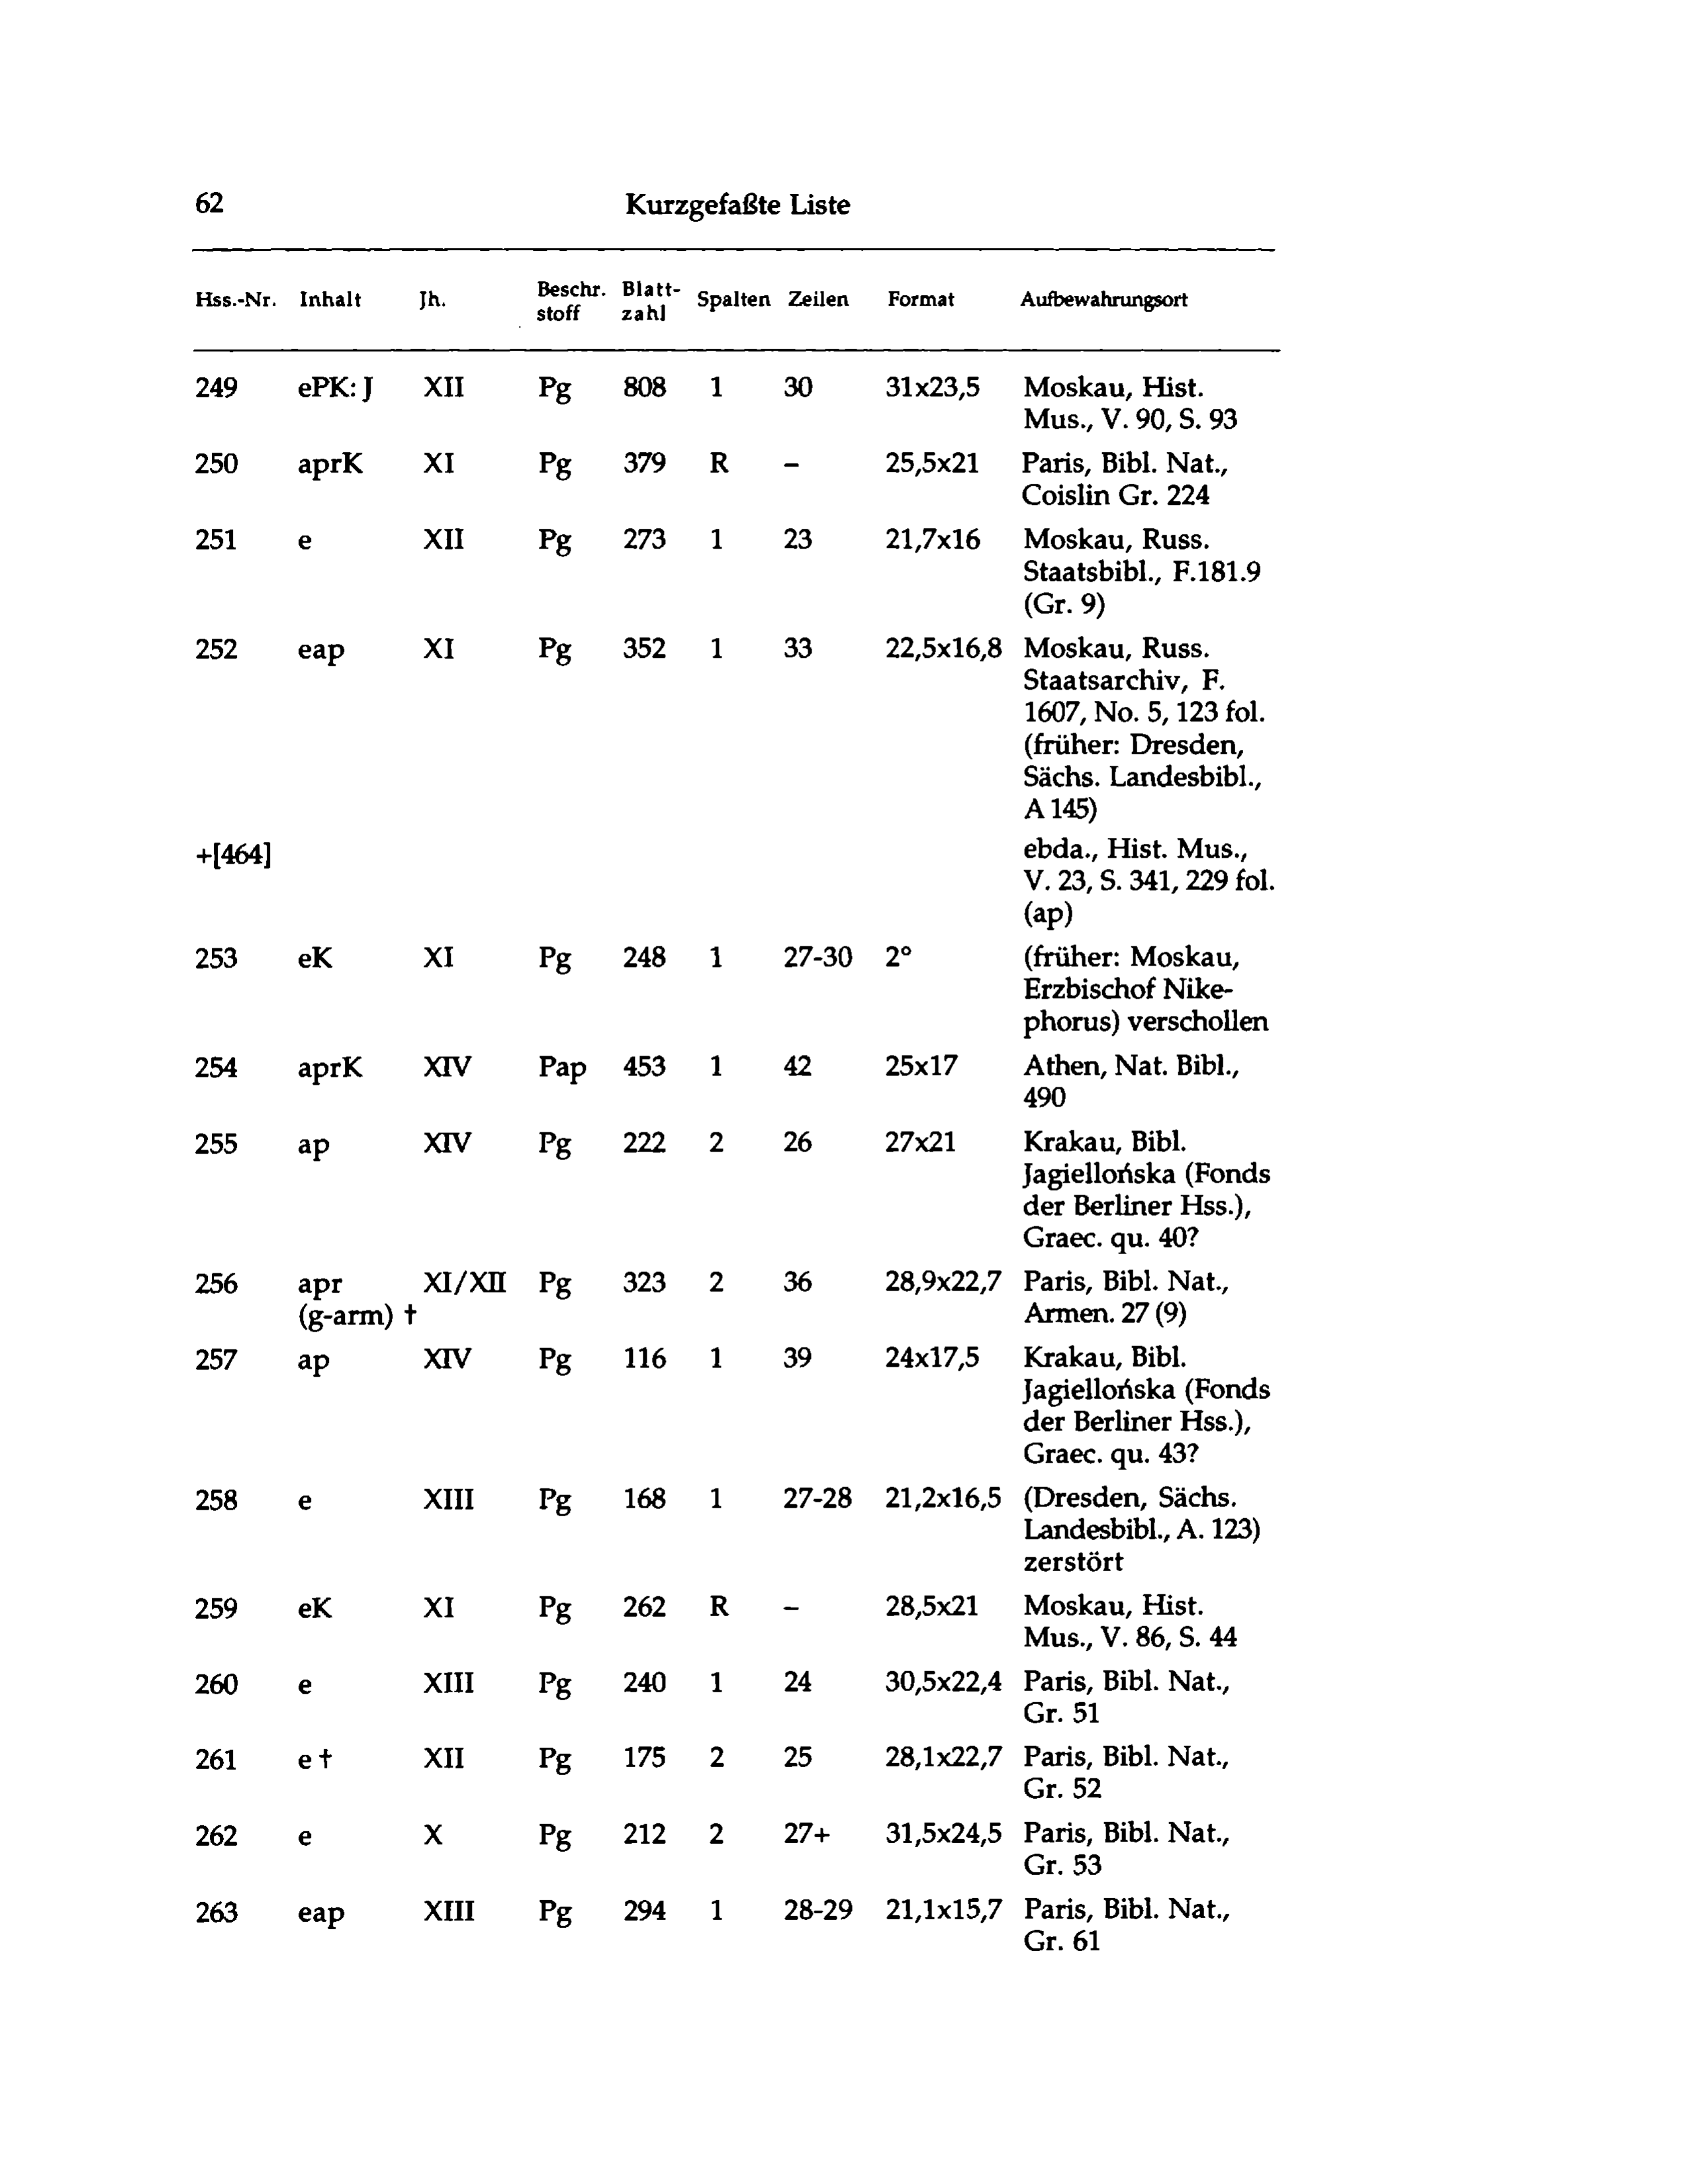 62 Kurzgefaßte Liste
Hss.-Nr. Inhalt Jh. Beschr. stoff Blatt- zahl Spalten Zeilen Format Aufbewahrungsort
249 ePK: J XII Pg 808 1 30 31x23,5 Moskau, Hist.
Mus., V. 90, S. 93
250 aprK XI Pg 379 R – 25,5x21 Paris, Bibl. Nat.,
Coislin Gr. 224
251 e XII Pg 273 1 23 21,7x16 Moskau, Russ.
Staatsbibl., F.181.9
(Gr. 9)
252 eap XI Pg 352 1 33 22,5x16,8 Moskau, Russ.
Staatsarchiv, F.
1607, No. 5, 123 fol.
(früher: Dresden,
Sächs. Landesbibl.,
A 145)
+[464] ebda., Hist. Mus.,
V. 23, S. 341, 229 fol.
(ap)
253 eK XI Pg 248 1 27-30 2° (früher: Moskau,
Erzbischof Nike-
phorus) verschollen
254 aprK XIV Pap 453 1 42 25x17 Athen, Nat. Bibl.,
490
255 ap XIV Pg 222 2 26 27x21 Krakau, Bibl.
Jagiellońska (Fonds
der Berliner Hss.),
Graec. qu. 40?
256 apr XI/XII Pg 323 2 36 28,9x22,7 Paris, Bibl. Nat.,
(g-arm) † Armen. 27 (9)
257 ap XIV Pg 116 1 39 24x17,5 Krakau, Bibl.
Jagiellońska (Fonds
der Berliner Hss.),
Graec. qu. 43?
258 e XIII Pg 168 1 27-28 21,2x16,5 (Dresden, Sächs.
Landesbibl., A. 123)
zerstört
259 eK XI Pg 262 R – 28,5x21 Moskau, Hist.
Mus., V. 86, S. 44
260 e XIII Pg 240 1 24 30,5x22,4 Paris, Bibl. Nat.,
Gr. 51
261 e † XII Pg 175 2 25 28,1x22,7 Paris, Bibl. Nat.,
Gr. 52
262 e X Pg 212 2 27+ 31,5x24,5 Paris, Bibl. Nat.,
Gr. 53
263 eap XIII Pg 294 1 28-29 21,1x15,7 Paris, Bibl. Nat.,
Gr. 61